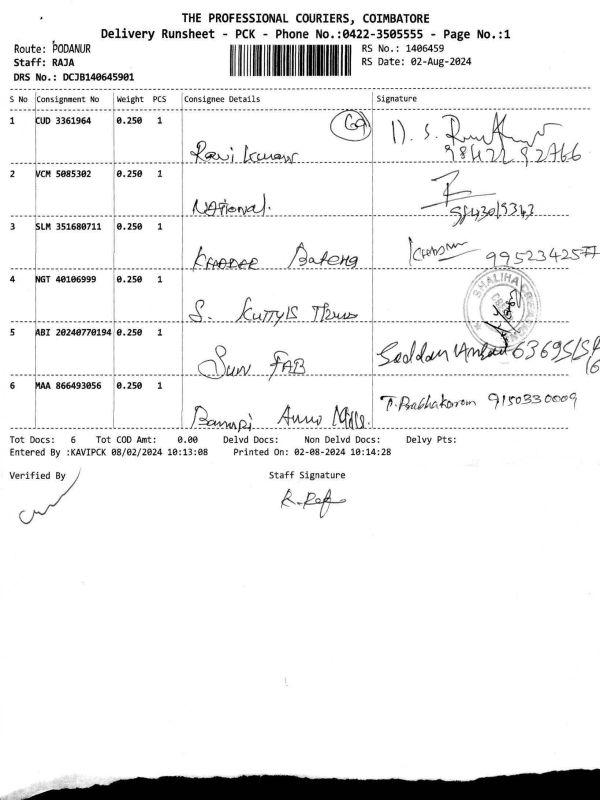 THE PROFESSIONAL COURIERS, COIMBATORE
Delivery Runsheet - PCK - Phone No.:0422-3505555 - Page No.:1
Route: PODANUR
RS No.: 1406459
Staff: RAJA
RS Date: 02-Aug-2024
DRS No.: DCJB140645901
S No Consignment No Weight PCS Consignee Details Signature
1 CUD 3361964 0.250 1
Ravi Kumar 98422 92766
2 VCM 5085302 0.250 1
National.
3 SLM 351680711 0.250 1
KHADER
4 NGT 40106999 0.250 1
S.
SHALIHA
5 ABI 20240770194 0.250 1
Sun FAB
6 MAA 866493056 0.250 1
Bannari Mills. T. Prabhakaran 9150330009
Tot Docs: 6 Tot COD Amt: 0.00 Delvd Docs: Non Delvd Docs: Delvy Pts:
Entered By :KAVIPCK 08/02/2024 10:13:08 Printed On: 02-08-2024 10:14:28
Verified By Staff Signature